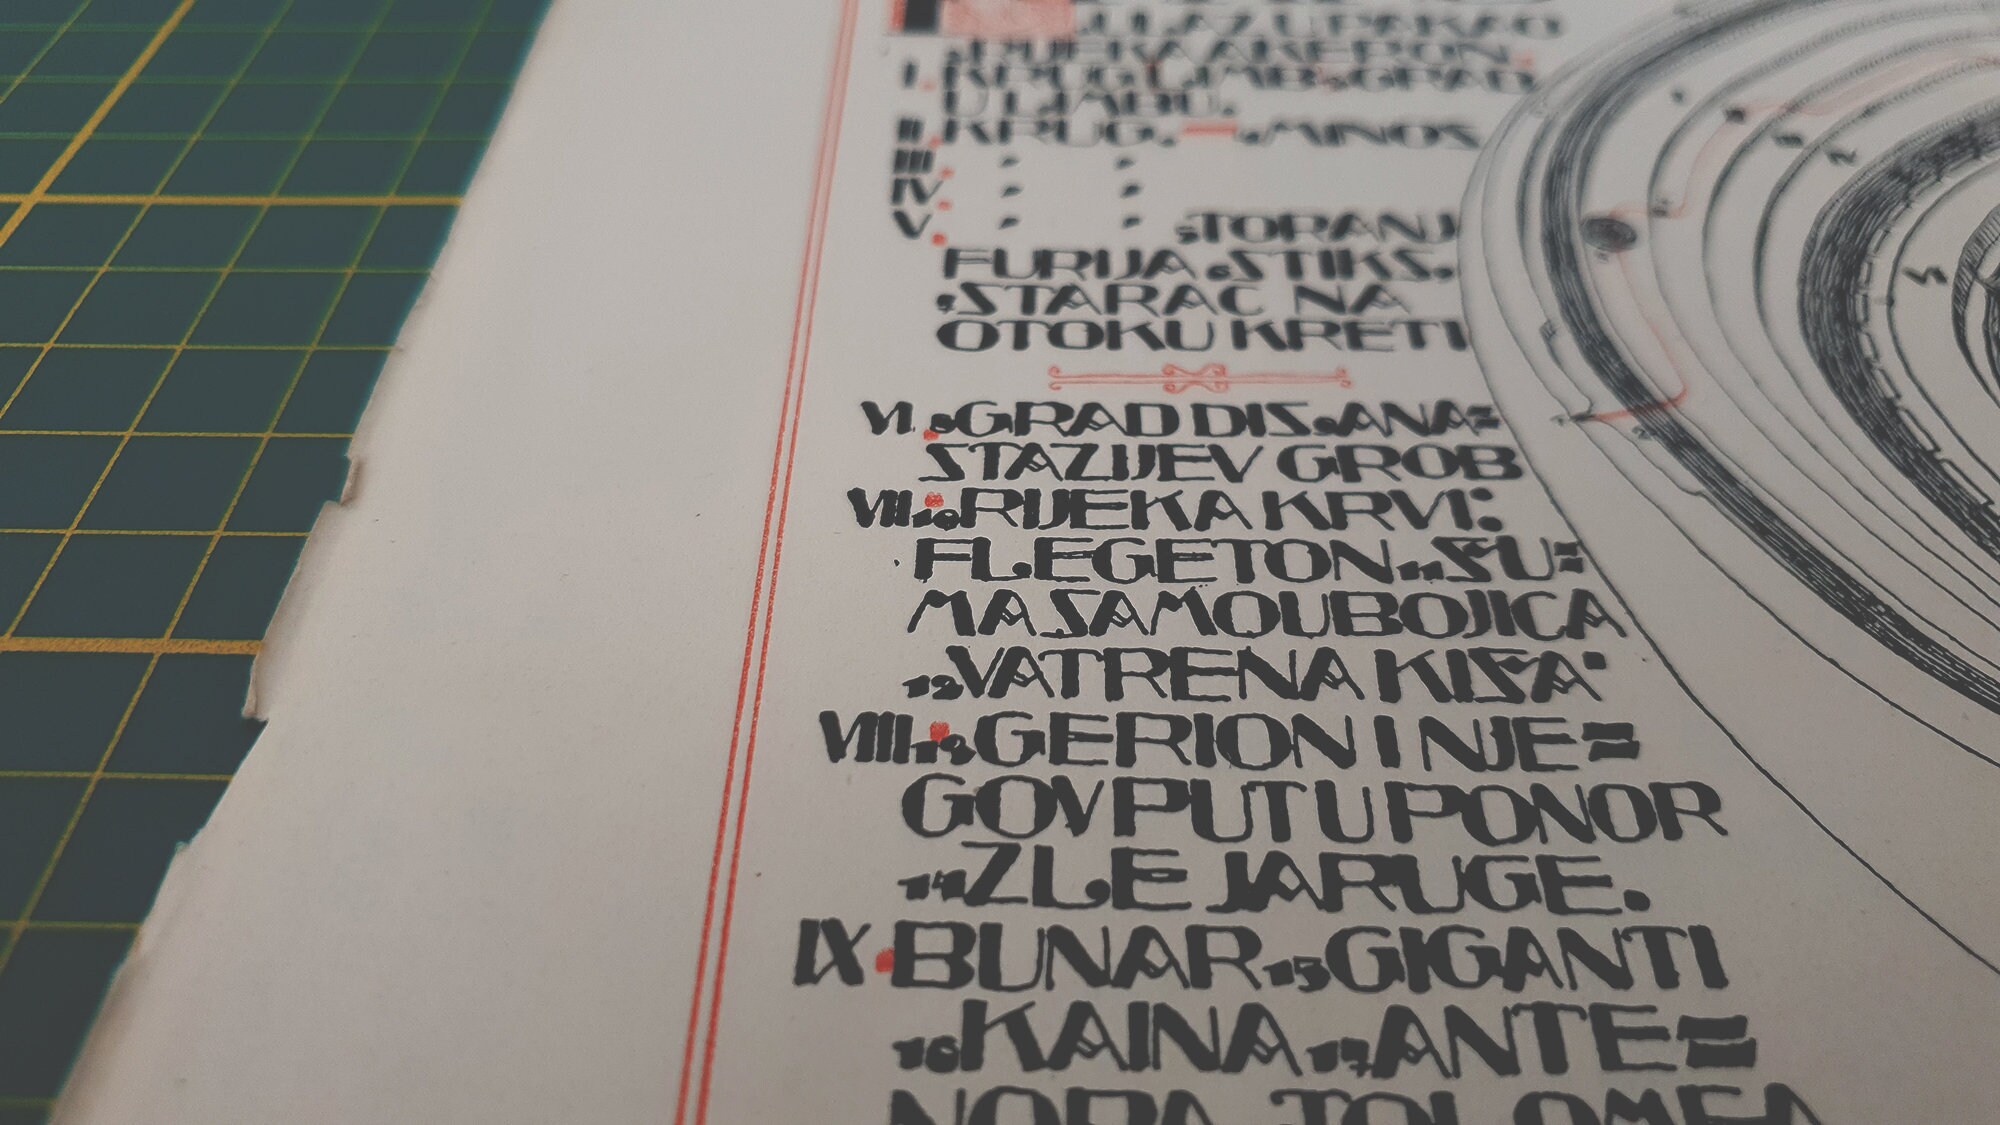 ULAZ U PAKAO
RIJEKA AKERON.
I. KRUG LIMB GRAD
U LIMBU.
II. KRUG. — 4. MINOS
III. " "
IV. " "
V. " " 5. TORANJ
FURIJA 6. STIKS.
7. STARAC NA
OTOKU KRETI
VI. 8. GRAD DIS. 9. ANA=
STAZIJEV GROB
VII. 10. RIJEKA KRVI:
FLEGETON. 11. ŠU=
MA SAMOUBOJICA
12. VATRENA KIŠA:
VIII. 13. GERION I NJE=
GOV PUT U PONOR
14. ZLE JARUGE.
IX. BUNAR. 15. GIGANTI
16. KAINA. 17. ANTE=
NORA TOLOMEA